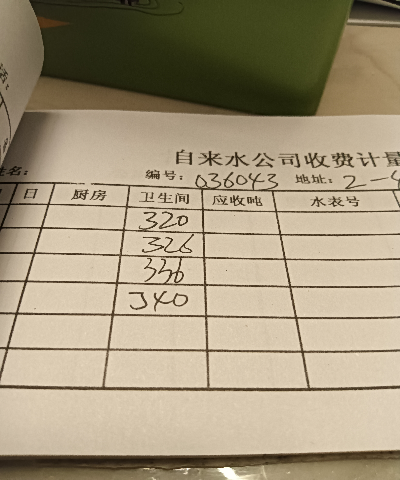 自来水公司收费计量
名: 编号: 036043 地址: 2-4
日 厨房 卫生间 应收吨 水表号
320
326
336
340